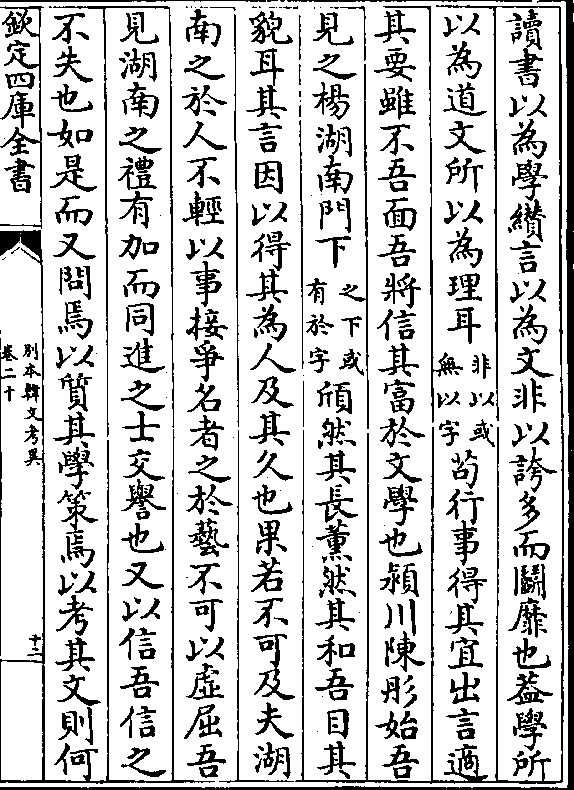 讀書以為學纉言以為文非以誇多而鬭靡也葢學所
以為道文所以為理耳非以或無以字茍行事得其宜出言適
其要雖不吾面吾將信其富於文學也潁川陳彤始吾
見之楊湖南門下之下或有於字頎然其長薫然其和吾目其
貌耳其言因以得其為人及其久也果若不可及夫湖
南之於人不輕以事接爭名者之於藝不可以虛屈吾
見湖南之禮有加而同進之士交譽也又以信吾信之
不失也如是而又問焉以質其學策焉以考其文則何
欽定四庫全書
别本韓文考異
卷二十
十二